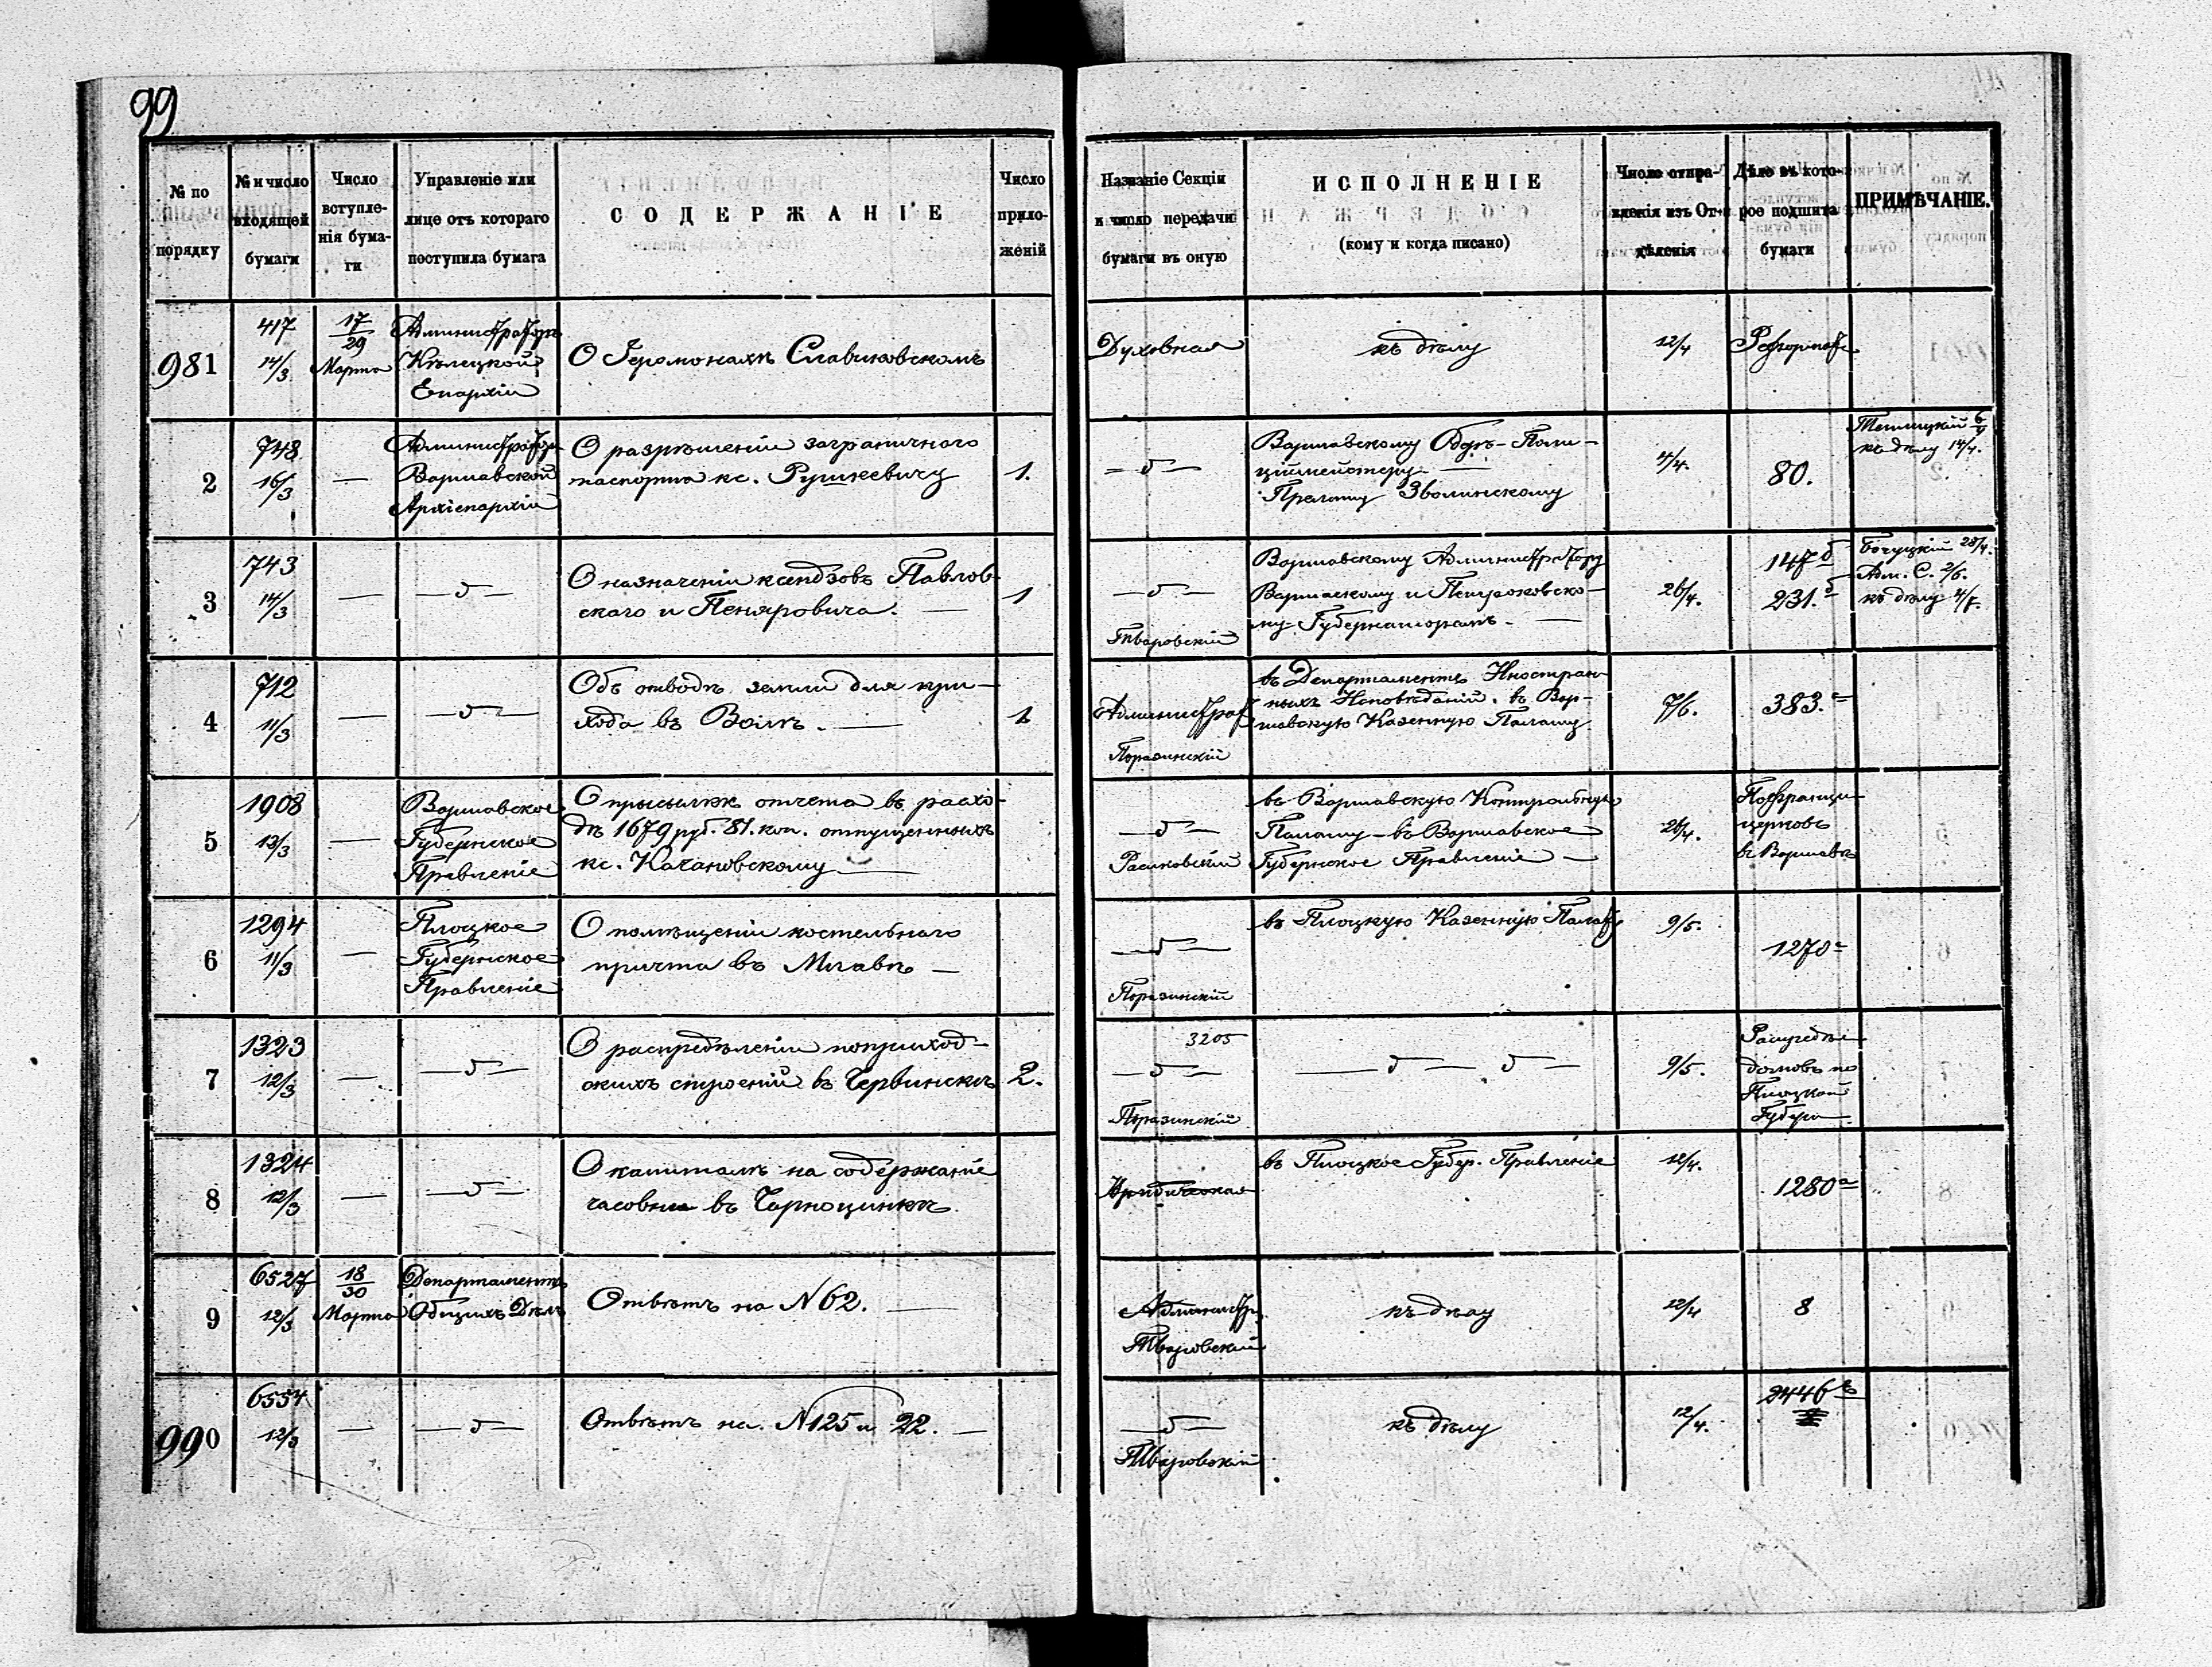 99
№ по порядку
№ и число входящей бумаги
Число вступленія бумаги
Управленіе или лице отъ котораго поступила бумага
СОДЕРЖАНІЕ
Число приложеній
Названіе Секціи и число передачи бумаги въ оную
ИСПОЛНЕНІЕ
(кому и когда писано)
Число отправленія изъ Отдѣленія
Дѣло въ которое подшита бумаги
ПРИМѢЧАНІЕ.
981
417
14/3
17/29
Марта
Администраторъ
Кѣлецкой
Епархіи
О Іеромонахѣ Славиковскомъ
Духовная
къ дѣлу
12/4
Реформат
2
748
16/3
—
Администраторъ
Варшавской
Архіепархіи
О разрѣшеніи заграничнаго
паспорта кс. Рушкевичу
1.
Варшавскому Оберъ-Поли-
ціймейстеру —
Прелату Зволинскому
4/4.
80.
къ дѣлу 14/4.
3
743
14/3
—
О назначеніи ксендзовъ Павлов-
скаго и Пеняровича. —
1
Тваровскій
Варшавскому Администратору
Варшавскому и Петроковско-
му Губернаторамъ. —
26/4.
147 б
231. б
28/4.
Адм. С. 2/6.
къ дѣлу
4
712
11/3
—
Объ отводѣ земли для при-
хода въ Волѣ. —
1.
Администрат
Поразинскій
въ Департаментъ Иностран
ныхъ Исповѣданій. въ Вар-
шавскую Казенную Палату
7/6.
383.
5
1908
13/3
—
Варшавское
Губернское
Правленіе
О присылкѣ отчета въ расхо-
дѣ 1679 руб. 81. коп. отпущенныхъ
кс. Качановскому —
въ Варшавскую Контрольную
Палату - въ Варшавское
Губернское Правленіе —
26/4.
церковь
въ Варшавѣ
6
1294
11/3
—
Плоцкое
Губернское
Правленіе
О помѣщеніи костельнаго
причта въ Млавѣ —
Поразинскій
въ Плоцкую Казенную Палату
9/5.
1270
7
1323
12/3
—
О распредѣленіи поприход-
скихъ строеній въ Червинскѣ
2.
3205
Поразинскій
9/5.
Распредѣл
домовъ по
Плоцкой
Губерн
8
1324
12/3
—
О капиталѣ на содержаніе
часовни въ Чарноцинкѣ.
Юридическая
въ Плоцкое Губер. Правленіе
12/4.
1280 а
9
6527
12/3
18/30
Марта
Департаментъ
Общихъ Дѣлъ
Отвѣтъ на N 62. —
Администр.
Тваровскій
къ дѣлу
12/4
8
990
6554
12/3
—
Отвѣтъ на. N 125 и 22. —
Тваровскій
къ дѣлу
12/4.
2446